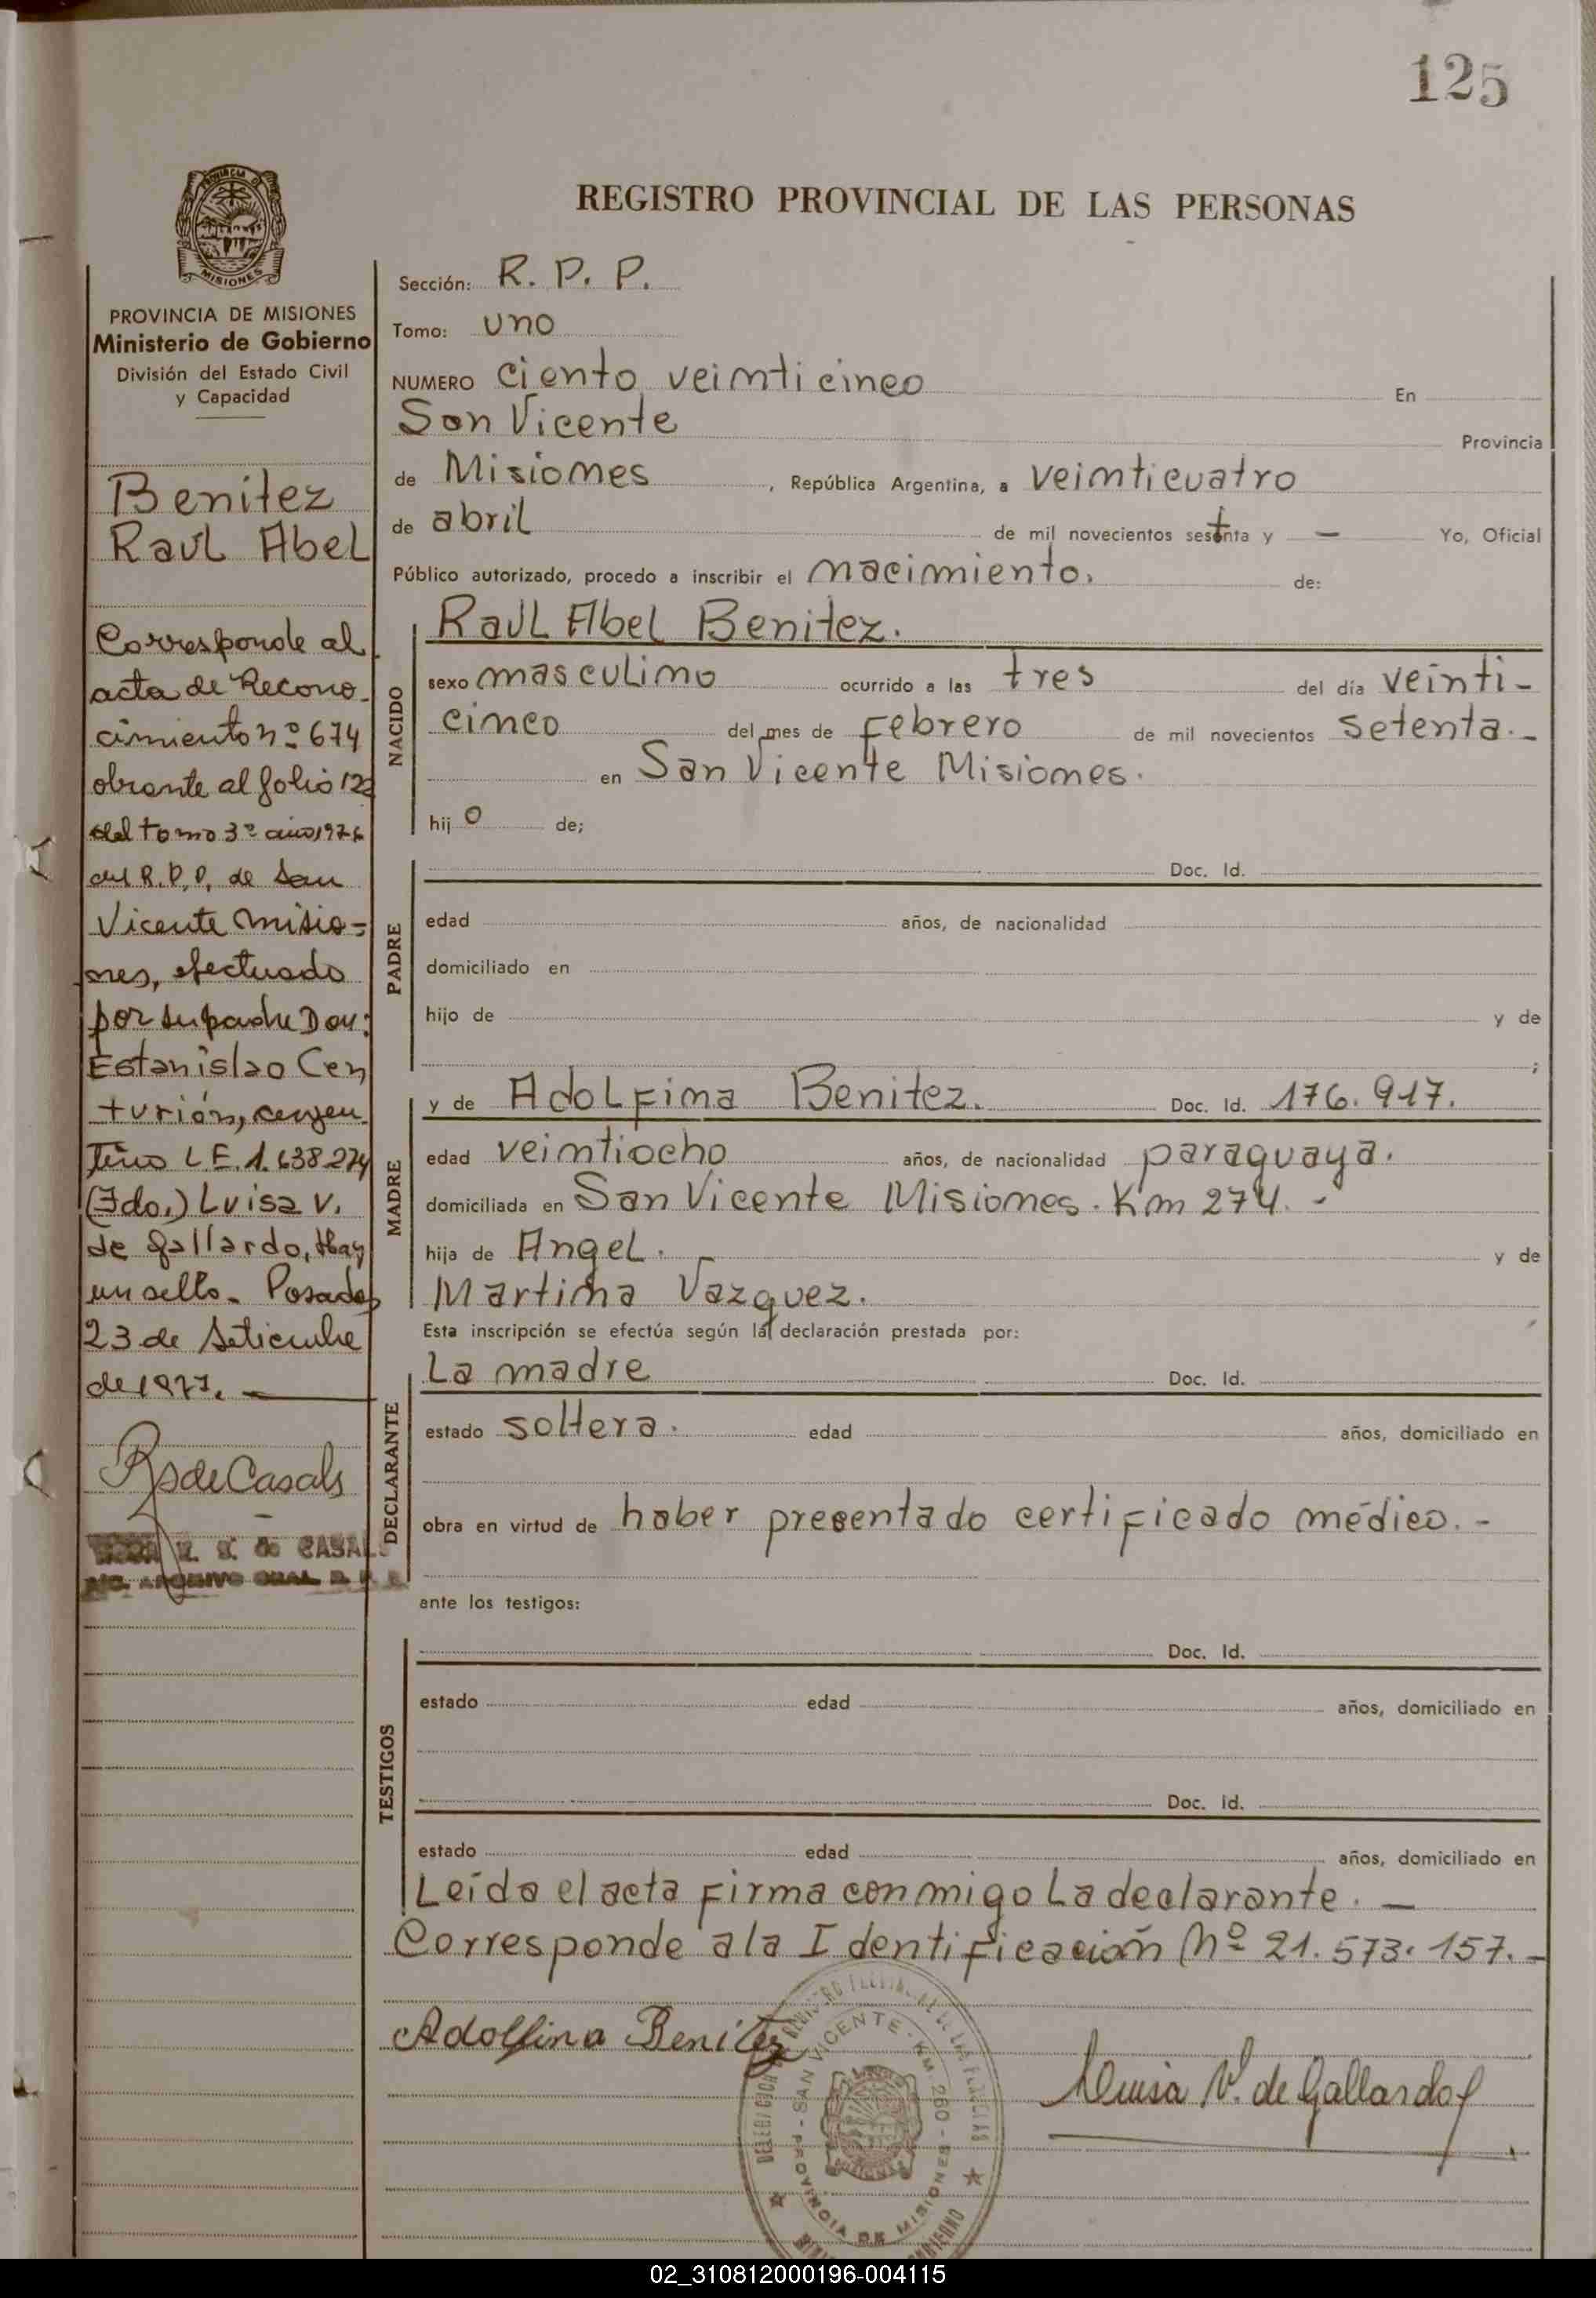 125
REGISTRO PROVINCIAL DE LAS PERSONAS
PROVINCIA DE MISIONES
Ministerio de Gobierno
División del Estado Civil
y Capacidad
Benitez
Raul Abel
Corresponde al
acta de Recono-
cimiento nº 674
obrante al folio 12
del tomo 3º año 197
del R.P.P. de San
Vicente Misio=
nes, efectuado
por su padre Don:
Estanislao Cen
turión, argen
tino L E. 1.638.274
(Fdo.) Luisa V.
de Gallardo, Hay
un sello. Posadas
23 de Setiembre
de 1977.
R S de Casals
R. S. de CASALS
ARCHIVO GRAL. R. P. P.
Sección: R. P. P.
Tomo: uno
NUMERO ciento veinticinco En
San Vicente Provincia
de Misiones, República Argentina, a veinticuatro
de abril de mil novecientos setenta y — Yo, Oficial
Público autorizado, procedo a inscribir el nacimiento. de:
NACIDO
Raul Abel Benitez.
sexo masculino ocurrido a las tres del día veinti-
cinco del mes de febrero de mil novecientos setenta.-
en San Vicente Misiones.
hij o de;
PADRE
Doc. Id.
edad años, de nacionalidad
domiciliado en
hijo de y de
;
MADRE
y de Adolfina Benitez. Doc. Id. 176.917.
edad veintiocho años, de nacionalidad paraguaya.
domiciliada en San Vicente Misiones. Km 274. -
hija de Angel. y de
Martina Vazquez.
Esta inscripción se efectúa según la declaración prestada por:
DECLARANTE
La madre Doc. Id.
estado soltera. edad años, domiciliado en
obra en virtud de haber presentado certificado médico. -
ante los testigos:
TESTIGOS
Doc. Id.
estado edad años, domiciliado en
Doc. Id.
estado edad años, domiciliado en
Leída el acta firma conmigo La declarante. —
Corresponde a la Identificación Nº 21.573.157. -
Adolfina Benitez
Luisa V. de Gallardo
SAN VICENTE - KM. 260 - PROVINCIA DE MISIONES
02_310812000196-004115